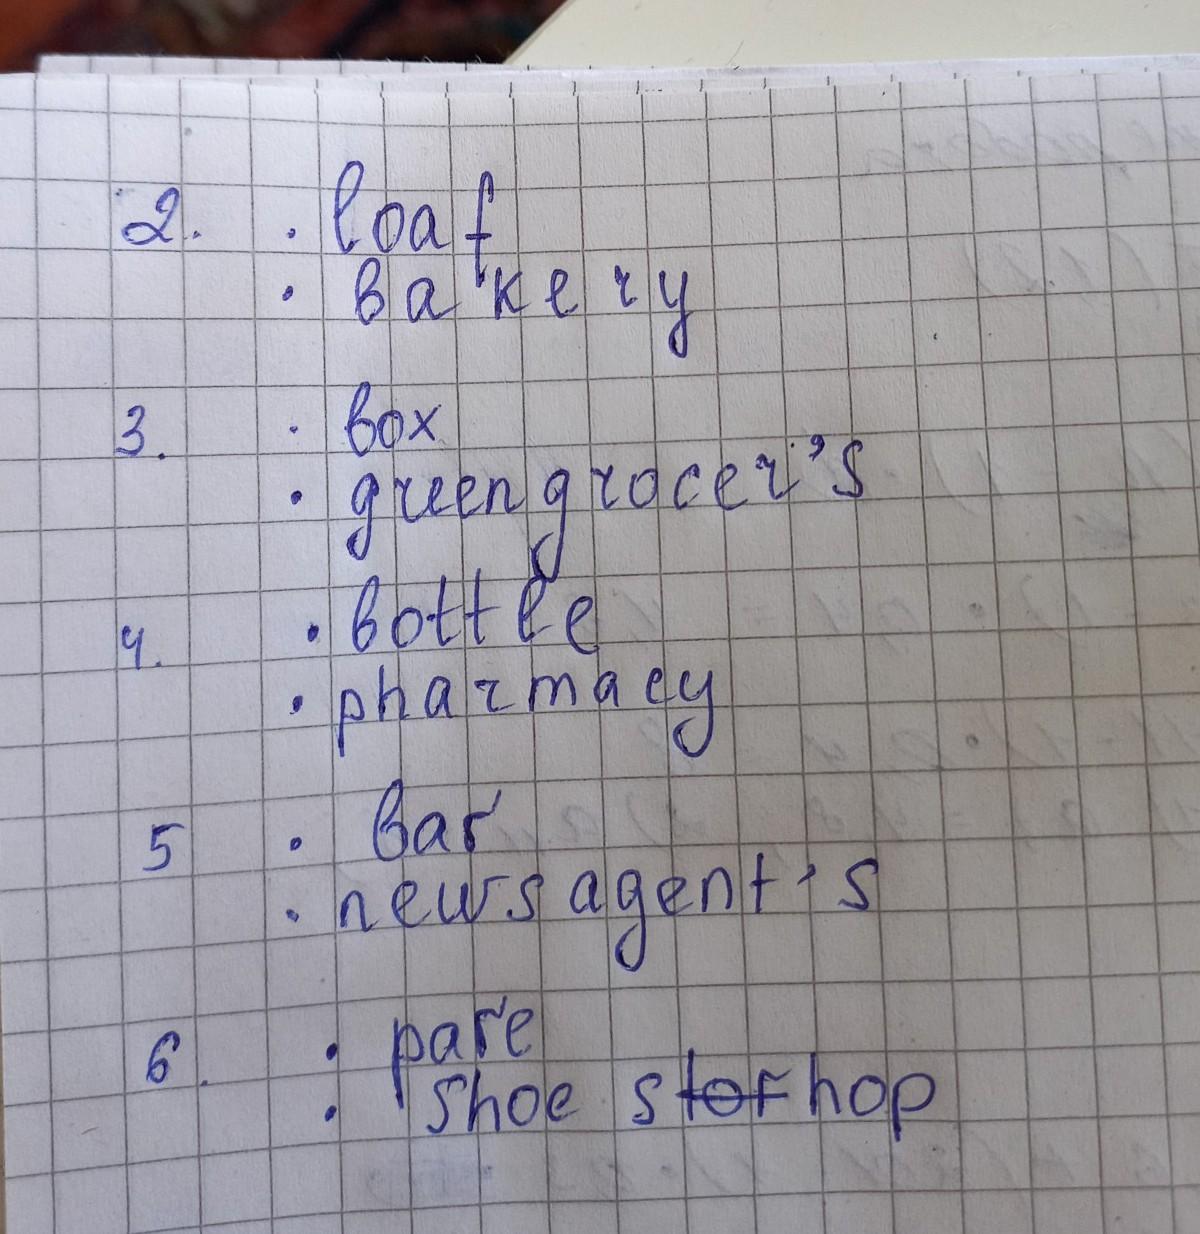 2. · loaf
· bakery
3. · box
· greengrocer's
4. · bottle
· pharmacy
5 · bar
· newsagent's
6. · pare
· shoe shop